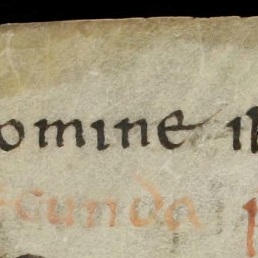 omine
ecunda